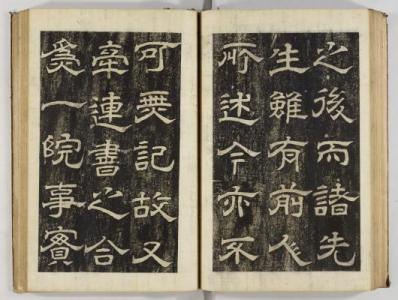 之後而諸先
生雖有前人
所述今亦不
可無記故又
牽連書之合
為一院事賓